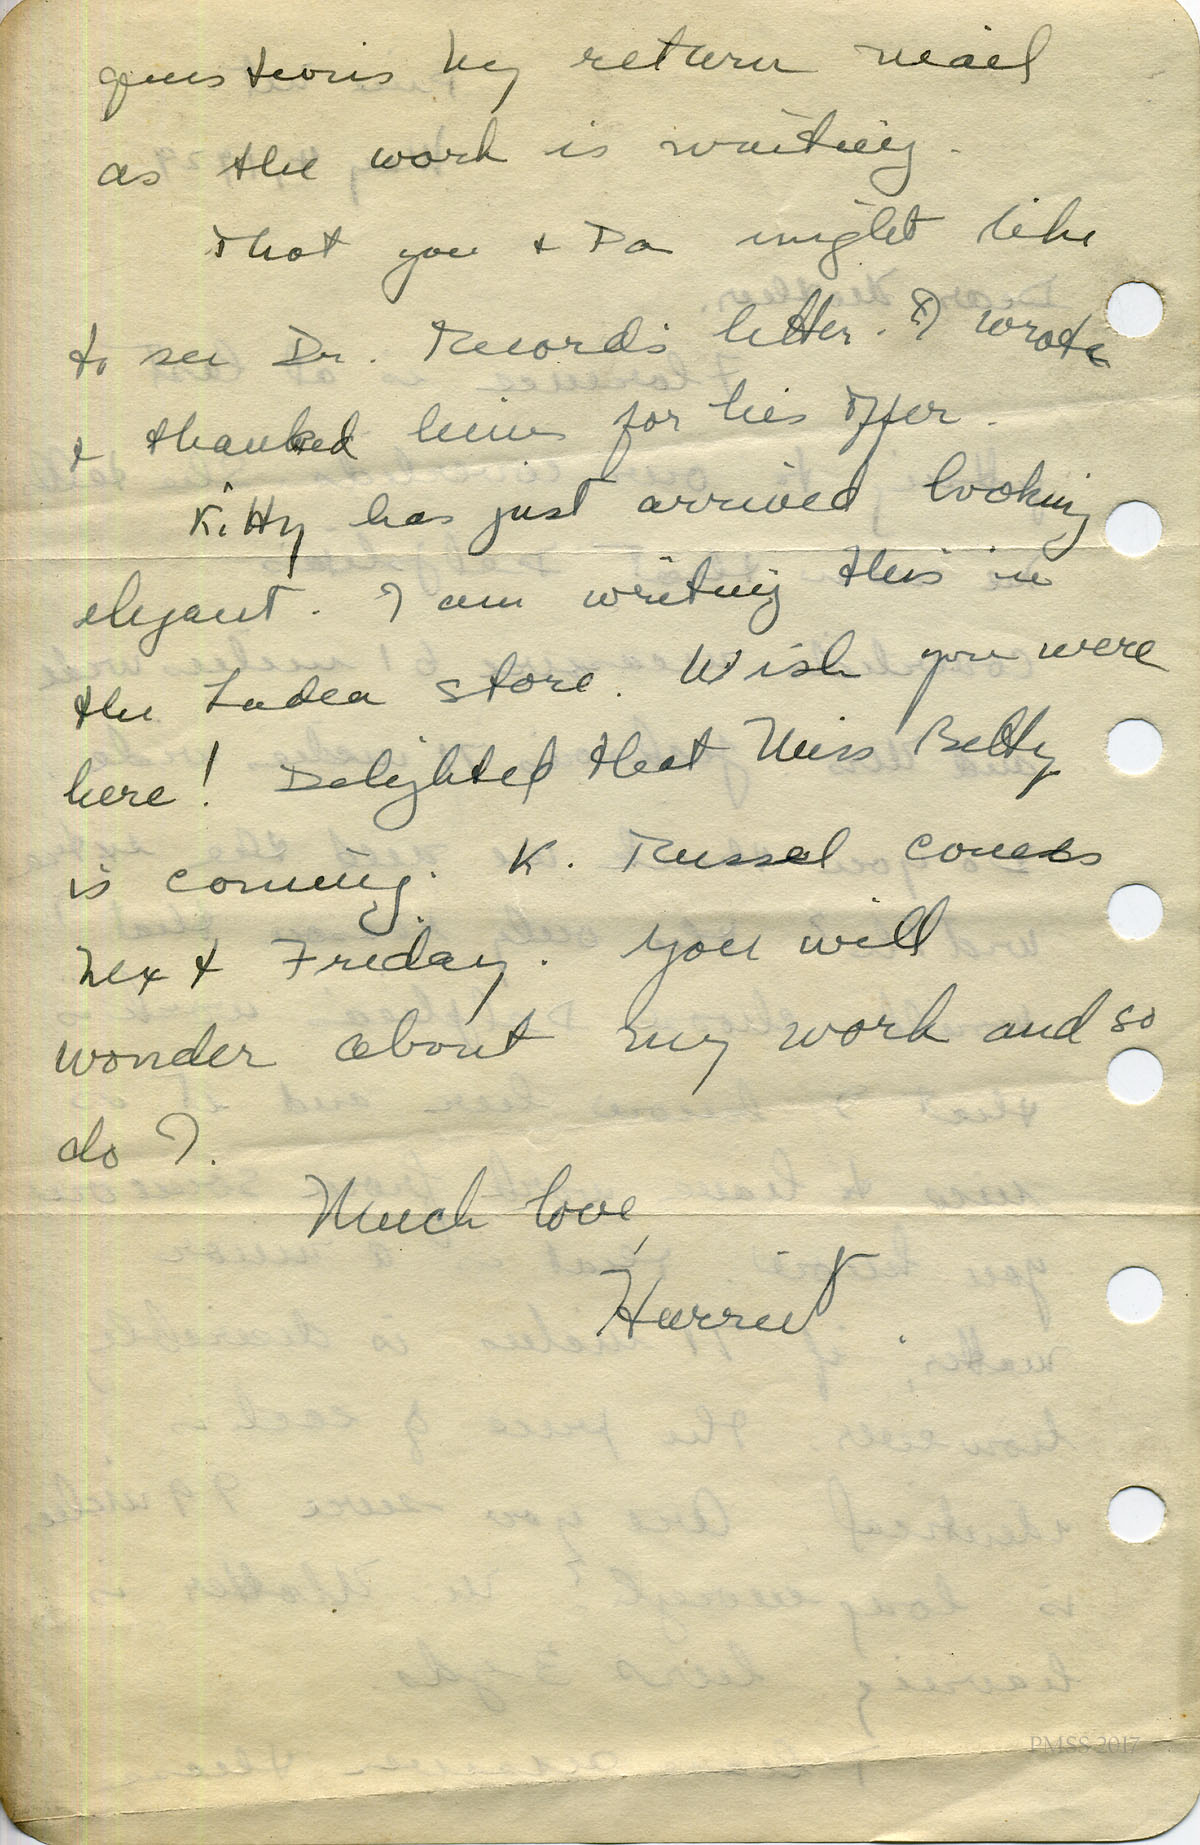 questions by return mail
as the work is waiting.
Thot you & Da might like
to see Dr. Record's letter. I wrote
& thanked him for his offer.
Kitty has just arrived looking
elegant. I am writing this in
the store. Wish you were
here! Delighted that Miss Betty
is coming. K. Russel comes
next Friday. You will
wonder about my work and so
do I.
Much love,
Harriet
PMSS 2017